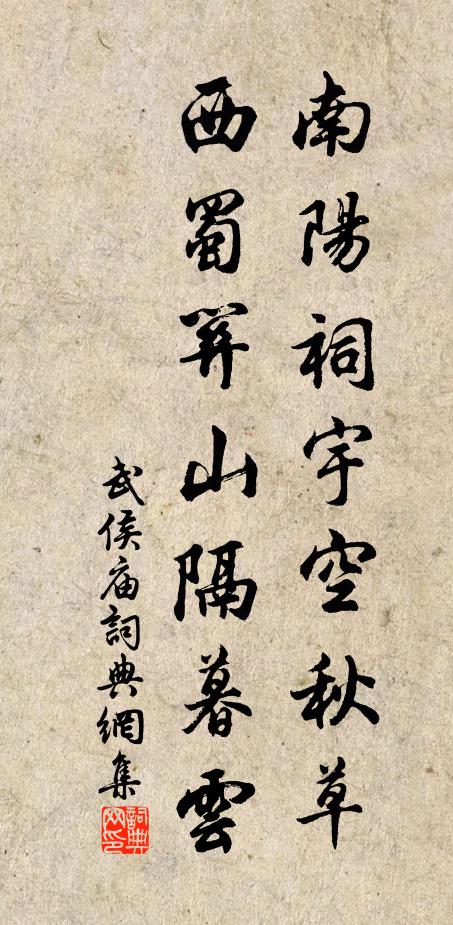 南陽祠宇空秋草
西蜀關山隔暮雲
武侯庙詞典網集
詞典网印